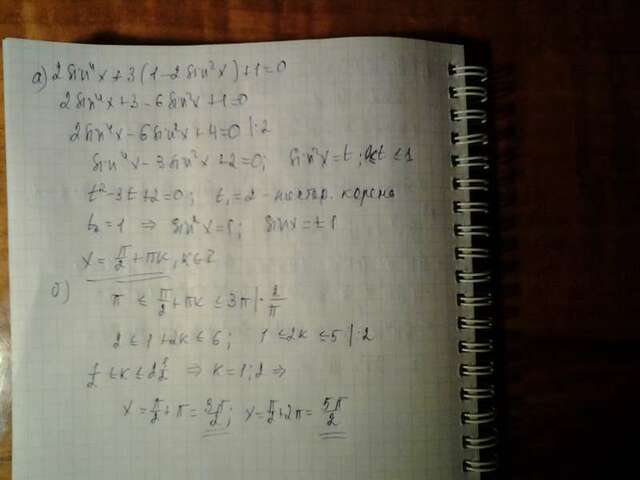 а) 2 sin⁴x + 3(1 - 2sin²x) + 1 = 0
2 sin⁴x + 3 - 6 sin²x + 1 = 0
2 sin⁴x - 6 sin²x + 4 = 0 | : 2
sin⁴x - 3 sin²x + 2 = 0; sin²x = t; 0 ≤ t ≤ 1
t² - 3t + 2 = 0; t₁ = 2 - постор. корень
t₂ = 1 ⇒ sin²x = 1; sinx = ± 1
x = π/2 + πk, k ∈ Z
б)
π ≤ π/2 + πk ≤ 3π | · 2/π
2 ≤ 1 + 2k ≤ 6; 1 ≤ 2k ≤ 5 | : 2
1/2 ≤ k ≤ 2 1/2 ⇒ k = 1; 2 ⇒
x = π/2 + π = 3π/2; x = π/2 + 2π = 5π/2